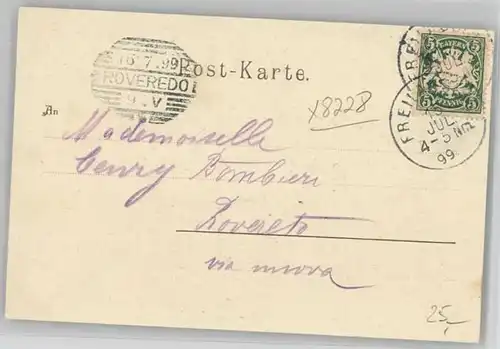 16 7 99
ROVEREDO
Post-Karte.
BAYERN
5 5
PFENNIG
FREI
JUL.
4-5 Nm
99
x8228
An
Mademoiselle
Henry Bombieri
Rovereto
via nuova
25,-